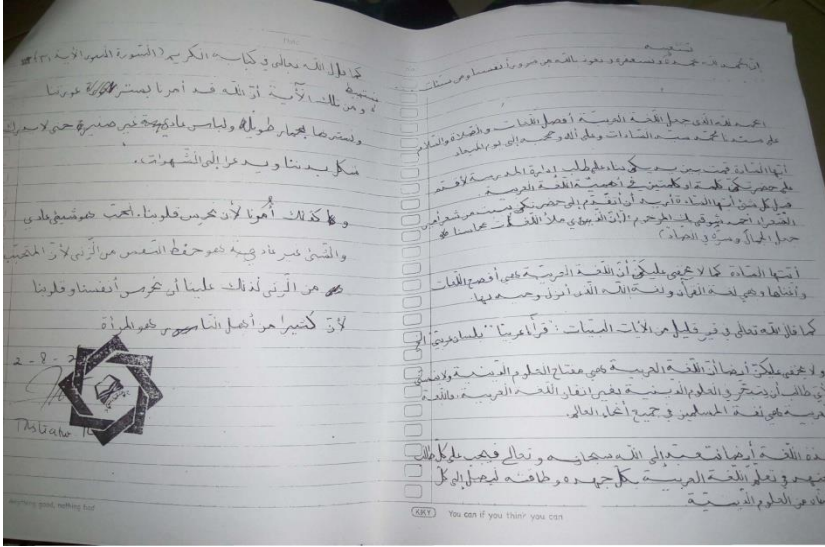 تنبيه
إن الحمد لله نحمده ونستغفره ونعوذ بالله من شرور أنفسنا ومن سيئات
الحمد لله الذي جعل اللغة العربية أفضل اللغات والصلاة والسلام
على سيدنا محمد سيد السادات وعلى آله وصحبه إلى يوم الميعاد
أيتها السادة قمت بين يديكم بناء على طلب إدارة المدرسة لأقدم
على حضرتكم كلمة أو كلمتين في أهمية اللغة العربية
قبل كل شيء أيتها السادة أريد أن أتقدم إلى حضرتكم ببيت من شعر أمير
الشعراء أحمد شوقي بك المرحوم: (إن الذي ملأ اللغات محاسنا
جعل الجمال وسره في الضاد)
أيتها السادة كما لا يخفى عليكم أن اللغة العربية فهي أفصح اللغات
وأغناها وهي لغة القرآن ولغة الله الذي أنزل وحيه بها.
كما قال الله تعالى في غير قليل من الآيات البينات: "قرآنا عربيا" "بلسان عربي"
ولا يخفى عليكم أيضا أن اللغة العربية فهي مفتاح العلوم الدينية ولا
لأي طالب أن يتبحر في العلوم الدينية بغير إتقان اللغة العربية، فاللغة
العربية فهي لغة المسلمين في جميع أنحاء العالم.
اللغة أيضا إلى الله سبحانه وتعالى فيجب على كل طالب
اللغة العربية كل جهده وطاقته ليصل إلى كل
من العلوم الدينية
KMY You can if you think you can
كما قال الله تعالى في كتابه الكريم (السورة النور الآية ٣١)
ومن تلك الآية أن الله قد أمرنا بستر عورتنا
ونسترها بخمار طويلة ولباس عادي غير صغيرة حتى لا
شكل بدننا ويدعو إلى الشهوات.
وكذلك أمرنا لأن نحرس قلوبنا. الحب هو شيء عادي
والشيء غير عادي هو حفظ النفس من الزنى لأن
من الزنى لذلك علينا أن نحرس أنفسنا وقلوبنا
لأن كثيرا من أهل النار هو المرأة
2 - 8 -
Anything good, nothing bad